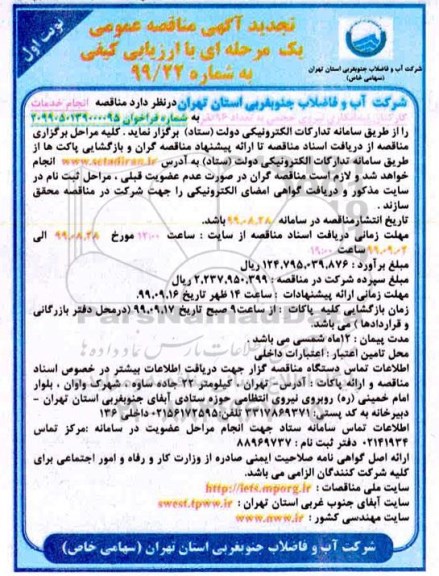 نوبت اول
تجدید آگهی مناقصه عمومی
یک مرحله ای با ارزیابی کیفی
به شماره ۹۹/۲۲
شرکت آب و فاضلاب جنوبغربی استان تهران
(سهامی خاص)
شرکت آب و فاضلاب جنوبغربی استان تهران درنظر دارد مناقصه انجام خدمات
به شماره فراخوان ۲۰۹۹۰۵۰۱۳۹۰۰۰۰۹۵
را از طریق سامانه تدارکات الکترونیکی دولت (ستاد) برگزار نماید . کلیه مراحل برگزاری
مناقصه از دریافت اسناد مناقصه تا ارائه پیشنهاد مناقصه گران و بازگشایی پاکت ها از
طریق سامانه تدارکات الکترونیکی دولت (ستاد) به آدرس www.setadiran.ir انجام
خواهد شد و لازم است مناقصه گران در صورت عدم عضویت قبلی ، مراحل ثبت نام در
سایت مذکور و دریافت گواهی امضای الکترونیکی را جهت شرکت در مناقصه محقق
سازند .
تاریخ انتشارمناقصه در سامانه ۹۹.۰۸.۲۸ باشد.
مهلت زمانی دریافت اسناد مناقصه از سایت : ساعت ۱۲:۰۰ مورخ ۹۹.۰۸.۲۸ الی
ساعت ۱۹:۰۰ ۹۹.۰۹.۰۲
مبلغ برآورد : ۱۲۴,۷۹۵,۰۳۹,۸۷۶ ریال
مبلغ سپرده شرکت در مناقصه : ۲,۲۳۷,۹۵۰,۳۹۹ ریال
مهلت زمانی ارائه پیشنهادات : ساعت ۱۴ ظهر تاریخ ۹۹.۰۹.۱۶
زمان بازگشایی کلیه پاکات : از ساعت ۹ صبح تاریخ ۹۹.۰۹.۱۷ (درمحل دفتر بازرگانی
و قراردادها ) می باشد.
مدت پیمان : ۱۲ماه شمسی می باشد .
محل تامین اعتبار : اعتبارات داخلی
اطلاعات تماس دستگاه مناقصه گزار جهت دریافت اطلاعات بیشتر در خصوص اسناد
مناقصه و ارائه پاکات : آدرس تهران ، کیلومتر ۲۲ جاده ساوه ، شهرک واوان ، بلوار
امام خمینی (ره) روبروی نیروی انتظامی حوزه ستادی آبفای جنوبغربی استان تهران -
دبیرخانه به کد پستی ۳۳۱۷۸۶۹۳۷۱ تلفن:۰۲۱۵۶۱۷۲۵۹۵ داخلی ۱۳۶
اطلاعات تماس سامانه ستاد جهت انجام مراحل عضویت در سامانه :مرکز تماس
۰۲۱۴۱۹۳۴ دفتر ثبت نام : ۸۸۹۶۹۷۳۷
ارائه اصل گواهی نامه صلاحیت ایمنی صادره از وزارت کار و رفاه و امور اجتماعی برای
کلیه شرکت کنندگان الزامی می باشد.
سایت ملی مناقصات : http://iets.mporg.ir
سایت آبفای جنوب غربی استان تهران : swest.tpww.ir
سایت مهندسی کشور : www.nww.ir
شرکت آب و فاضلاب جنوبغربی استان تهران (سهامی خاص)